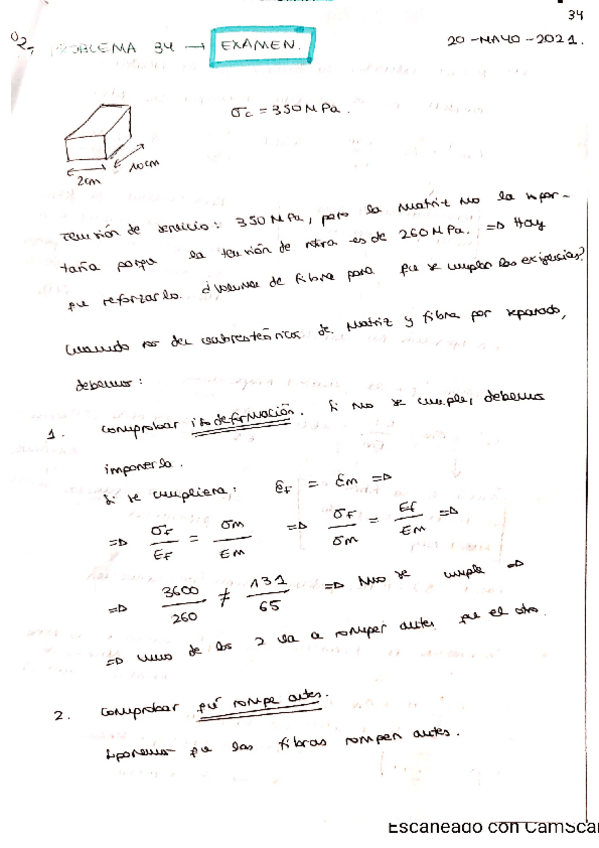 34
02, PROBLEMA 34 → EXAMEN. 20-MAYO-2021.
σc = 350 MPa.
10cm
2cm
Tensión de servicio: 350 MPa, pero la matriz no la sopor-
taría porque la tensión de rotura es de 260 MPa. => Hay
que reforzarlo. ¿Volumen de fibra para que se cumplan las exigencias?
Cuando nos dan valores teóricos de matriz y fibra por separado,
debemos:
1. Comprobar isodeformación. Si no se cumple, debemos
imponerla.
Si se cumpliera: εf = εm =>
=> σf/Ef = σm/Em => σf/σm = Ef/Em =>
=> 3600/260 ≠ 131/65 => No se cumple =>
=> uno de los 2 va a romper antes que el otro.
2. Comprobar qué rompe antes.
Suponemos que las fibras rompen antes.
Escaneado con CamScan